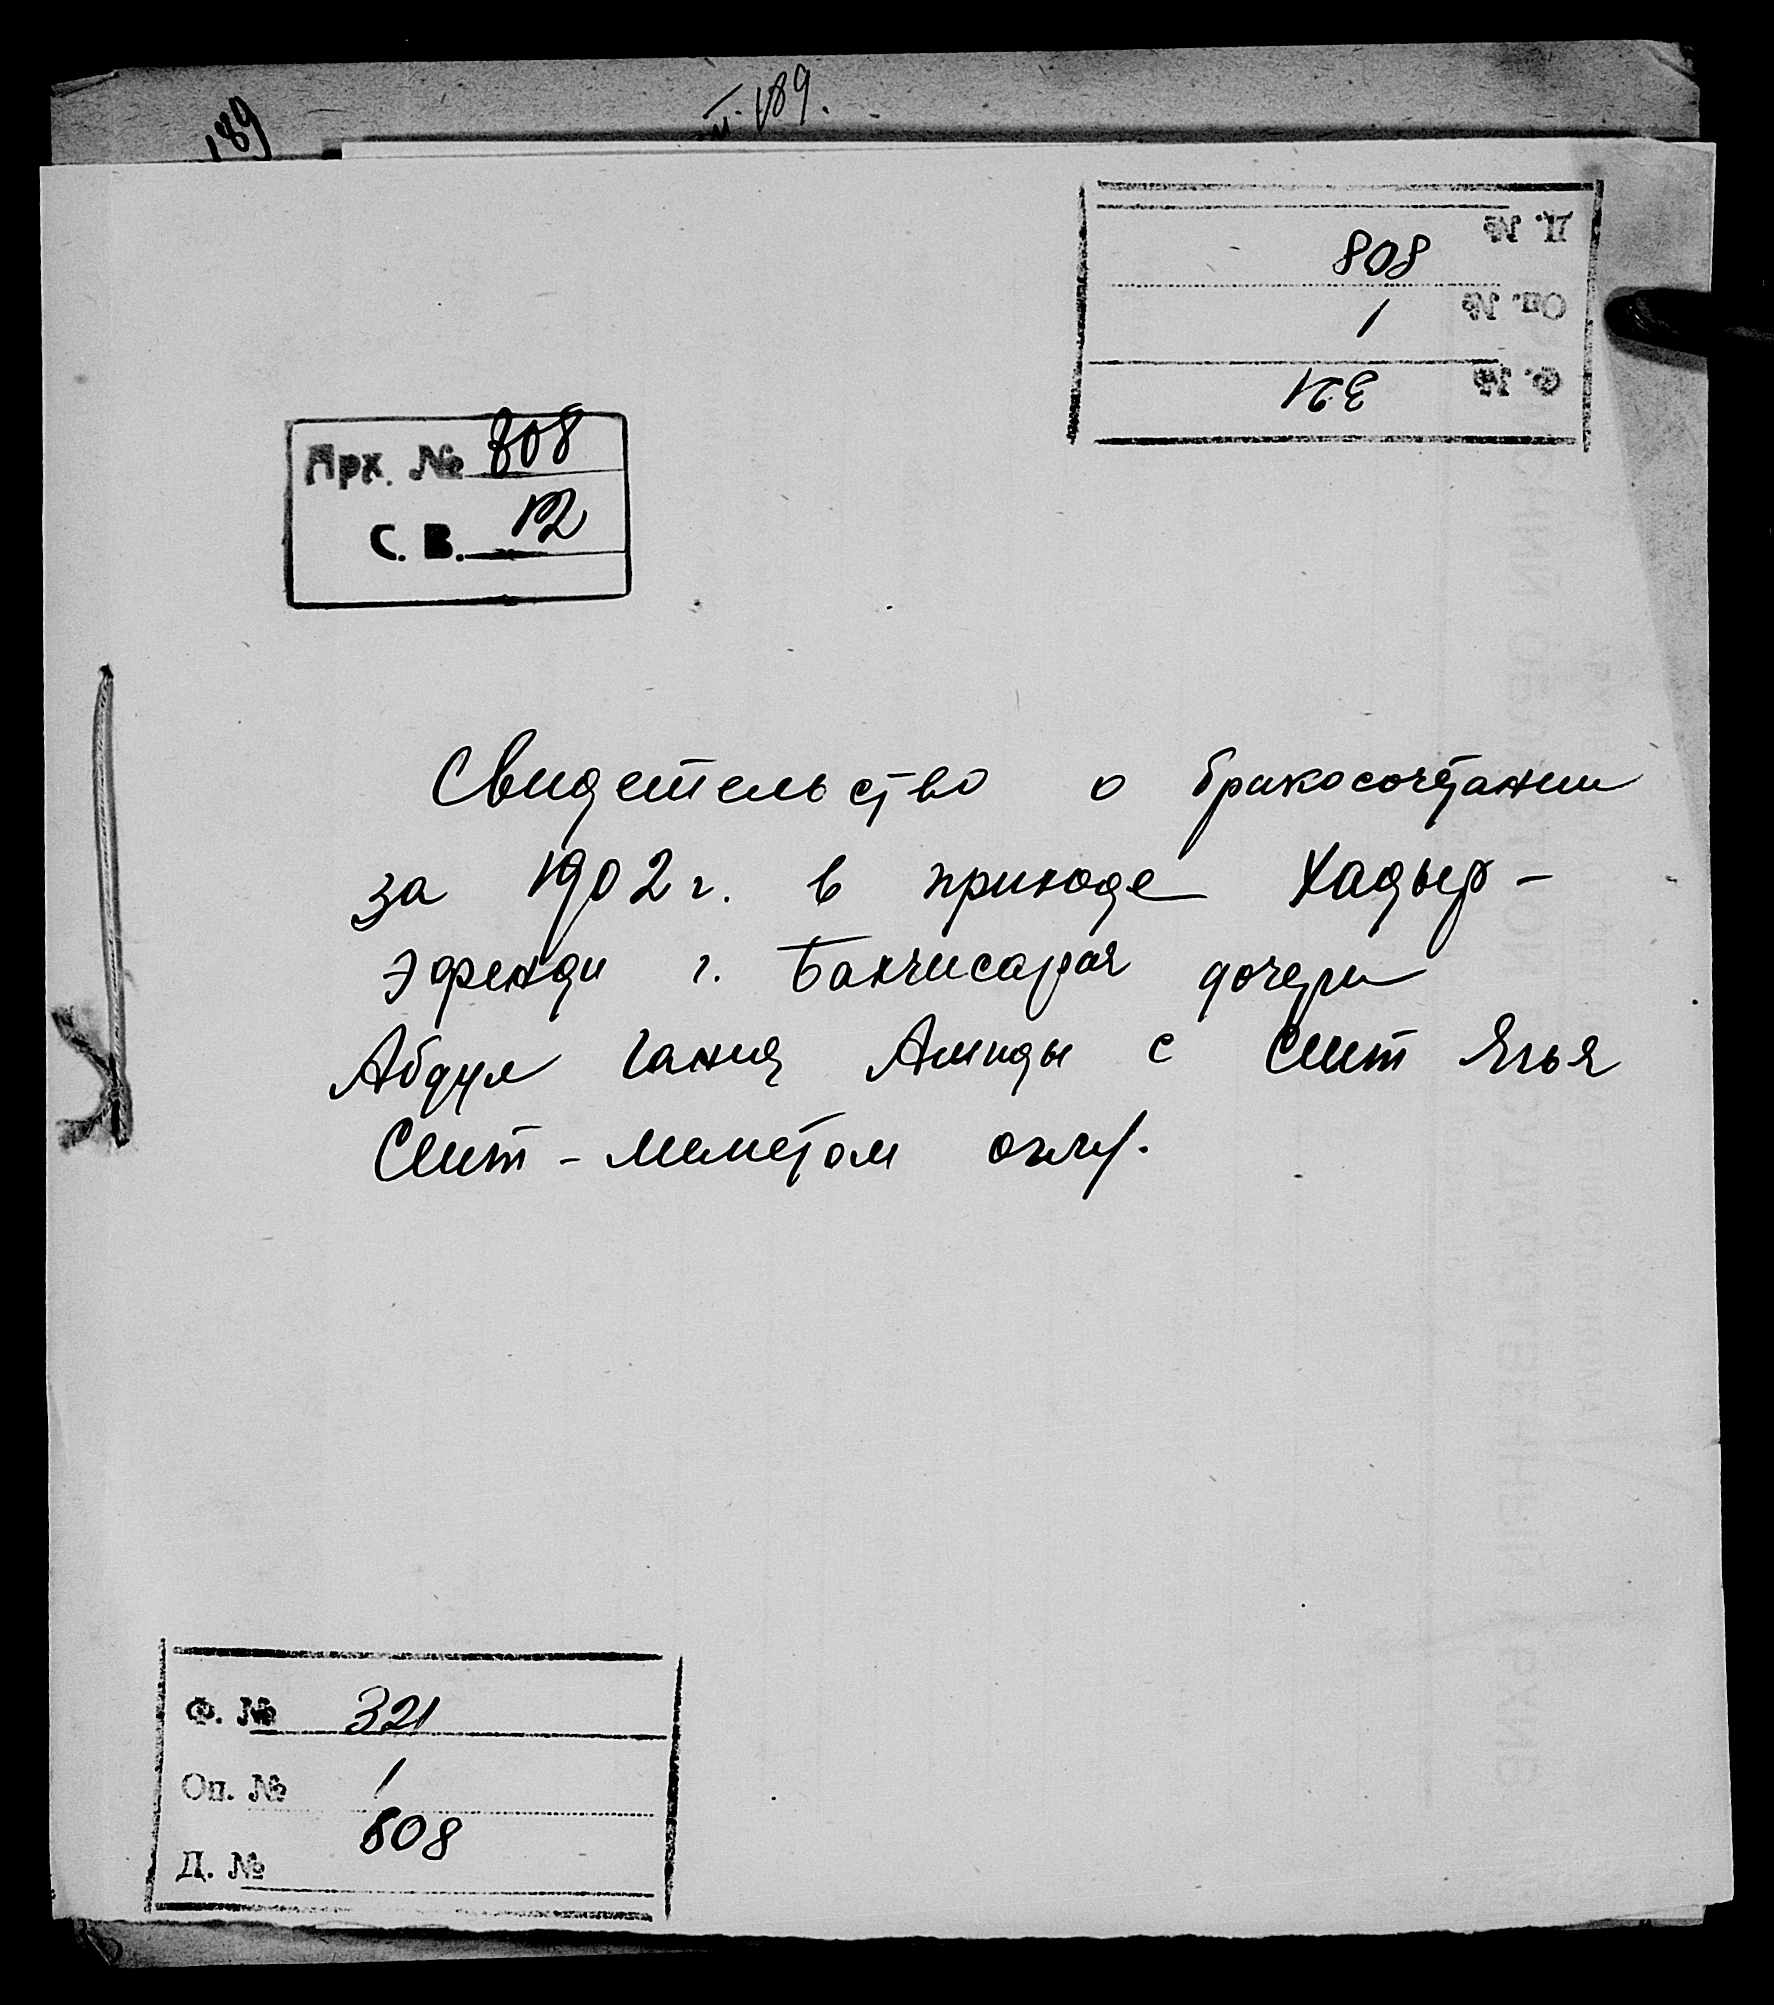 189
189.
Д. № 808
Оп. № 1
Ф. № 321
Арх. № 808
С. В. 12
Свидетельство о бракосочетании
за 1902 г. в приходе Хадыр-
эфенди г. Бахчисарая дочери
Абдул Гания Алиды с Сеит Ягья
Сеит-Меметом оглу.
Ф. № 321
Оп. № 1
Д. № 808